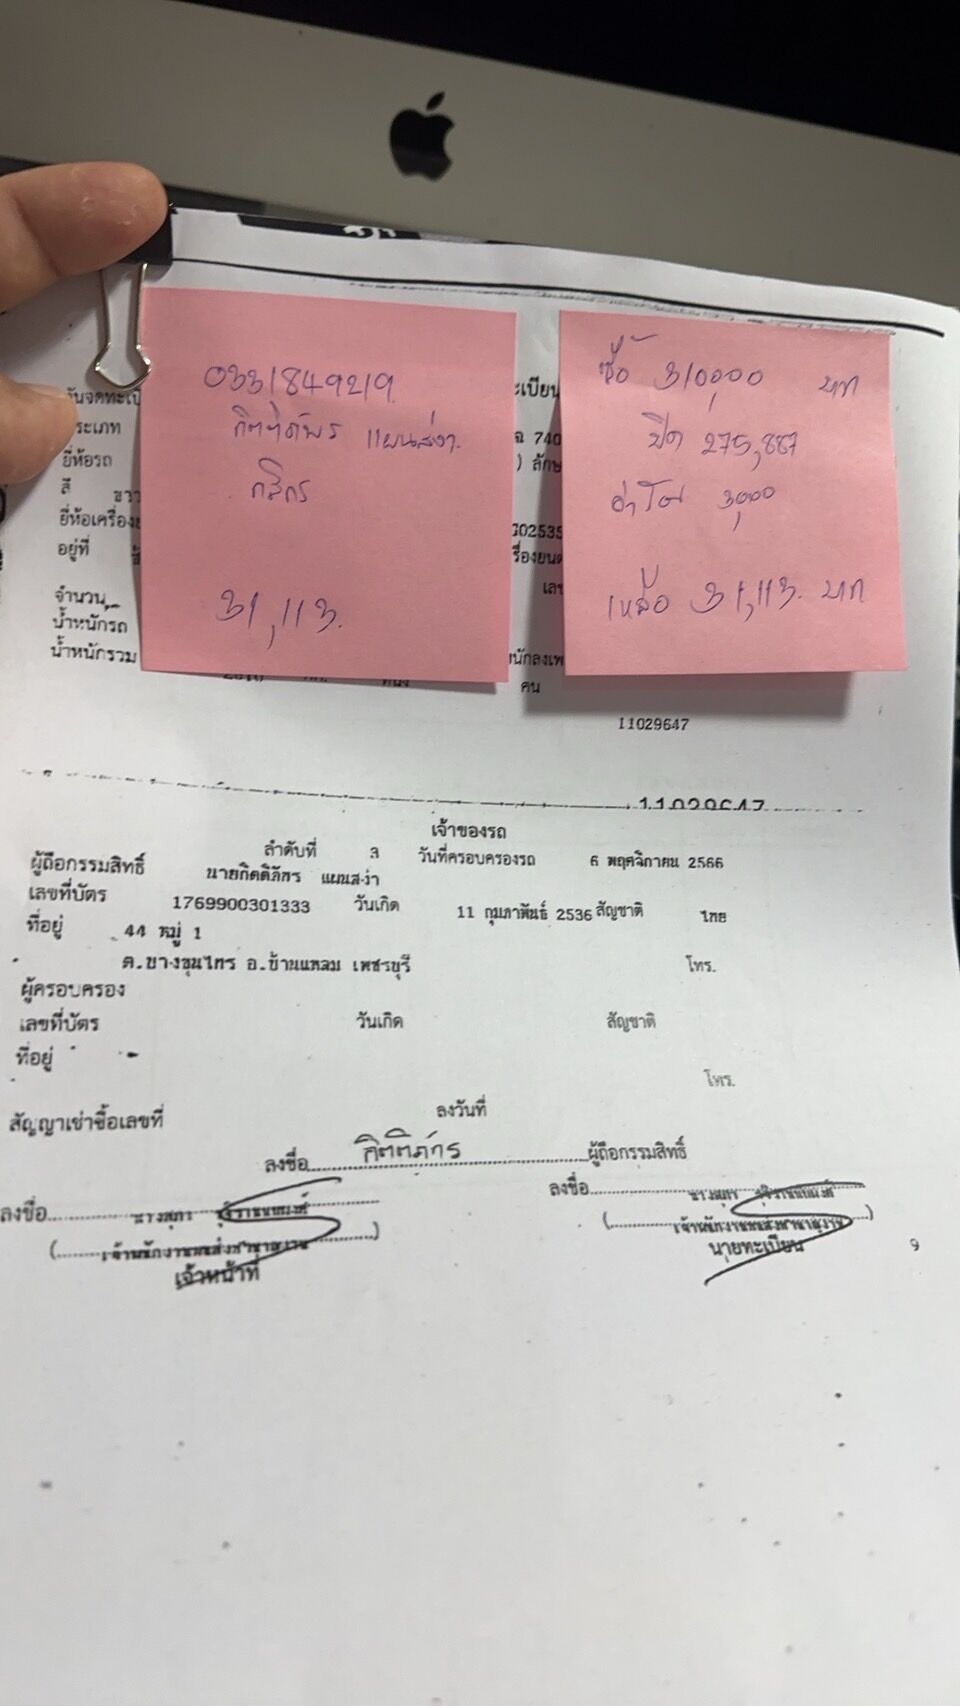 0331849219
กิตติภัทร แผนสง่า
กสิกร
31,113.
ซื้อ 310,000 บาท
ปิด 275,887
ค่าโอน 3,000
เหลือ 31,113. บาท
วันจดทะเบี
ประเภท
ยี่ห้อรถ
สี ขาว
ยี่ห้อเครื่องย
อยู่ที่
จำนวน
น้ำหนักรถ
น้ำหนักรวม
ะเบียน
740
) ลักษ
G02535
เลข
คน
11029647
11029647
เจ้าของรถ
ลำดับที่ 3 วันที่ครอบครองรถ 6 พฤศจิกายน 2566
ผู้ถือกรรมสิทธิ์ นายกิตติภัทร แผนสง่า
เลขที่บัตร 1769900301333 วันเกิด 11 กุมภาพันธ์ 2536 สัญชาติ ไทย
ที่อยู่ 44 หมู่ 1
ต.บางขุนไทร อ.บ้านแหลม เพชรบุรี โทร.
ผู้ครอบครอง
เลขที่บัตร วันเกิด สัญชาติ
ที่อยู่
โทร.
สัญญาเช่าซื้อเลขที่ ลงวันที่
ลงชื่อ กิตติภัทร ผู้ถือกรรมสิทธิ์
ลงชื่อ นางสุภา
เจ้าหน้าที่
ลงชื่อ นางสุภา
นายทะเบียน
9